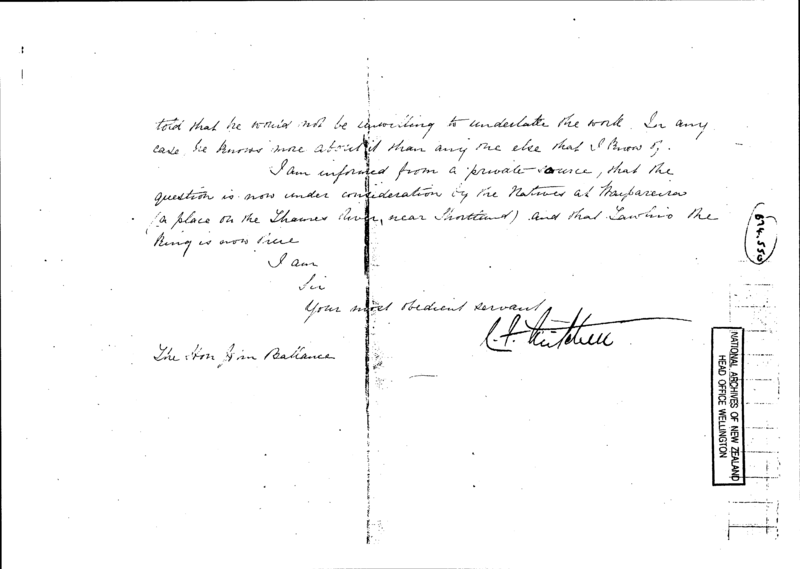 told that he would not be unwilling to undertake the work. In any
case he knows more about it than any one else that I know of.
I am informed from a private source, that the
question is now under consideration by the Natives at Waipareira
(a place on the Thames River, near Shortland) and that Tawhio the
King is now there
I am
Sir
Your most obedient servant
C. F. Mitchell
The Hon John Ballance
674.550
NATIONAL ARCHIVES OF NEW ZEALAND
HEAD OFFICE WELLINGTON